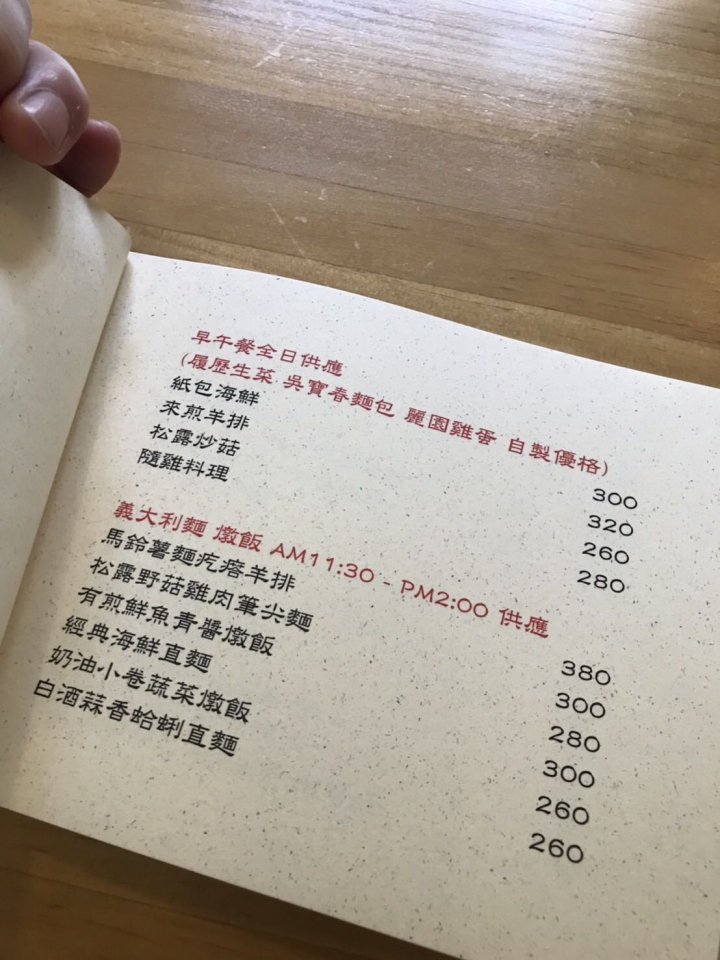 早午餐全日供應
(履歷生菜 吳寶春麵包 麗園雞蛋 自製優格)
紙包海鮮 300
來煎羊排 320
松露炒菇 260
隨雞料理 280
義大利麵 燉飯 AM11:30 - PM2:00 供應
馬鈴薯麵疙瘩羊排 380
松露野菇雞肉筆尖麵 300
有煎鮮魚青醬燉飯 280
經典海鮮直麵 300
奶油小卷蔬菜燉飯 260
白酒蒜香蛤蜊直麵 260